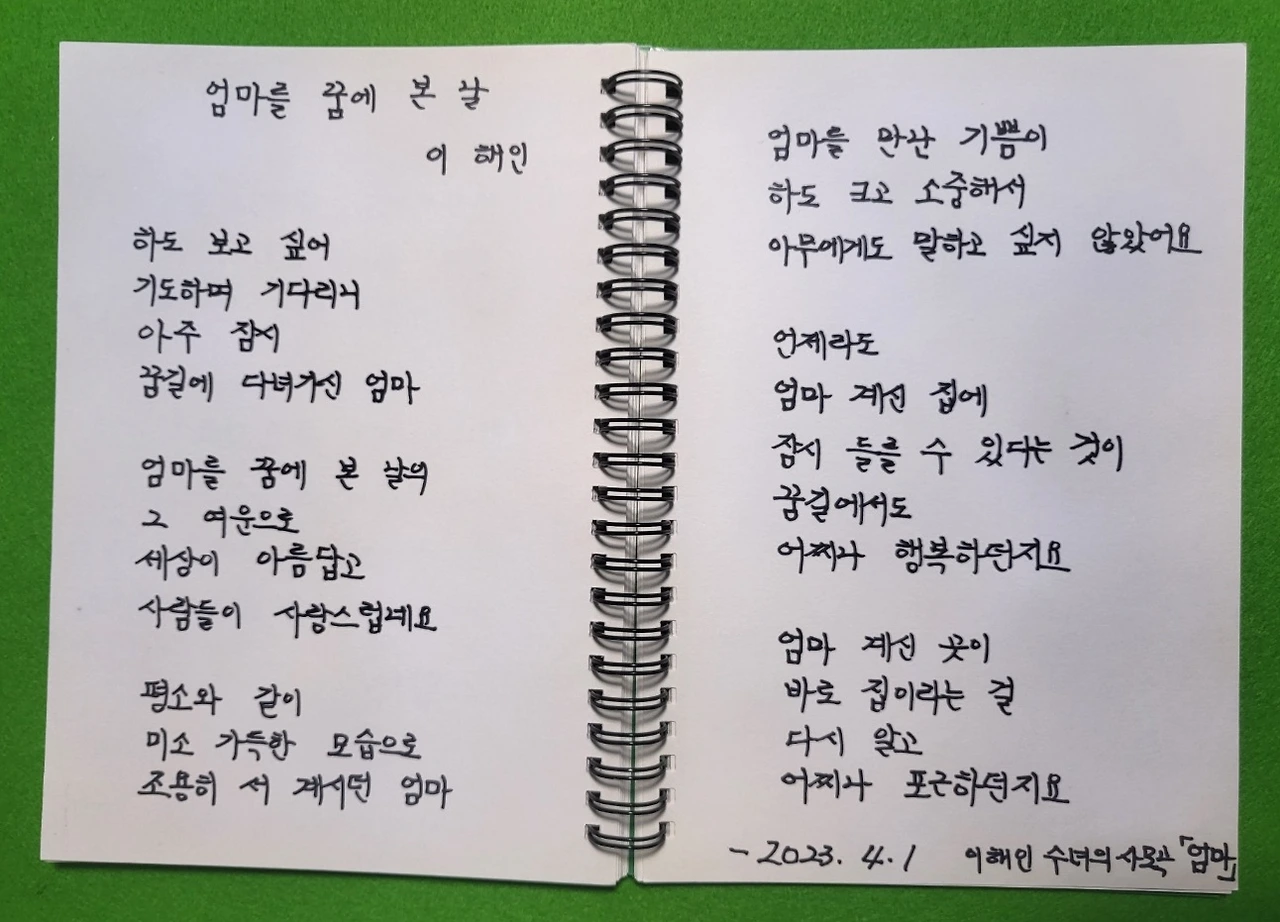 엄마를 꿈에 본 날
이 해인
하도 보고 싶어
기도하며 기다리니
아주 잠시
꿈길에 다녀가신 엄마
엄마를 꿈에 본 날의
그 여운으로
세상이 아름답고
사람들이 사랑스럽네요
평소와 같이
미소 가득한 모습으로
조용히 서 계시던 엄마
엄마를 만난 기쁨이
하도 크고 소중해서
아무에게도 말하고 싶지 않았어요
언제라도
엄마 계신 집에
잠시 들를 수 있다는 것이
꿈길에서도
어찌나 행복하던지요
엄마 계신 곳이
바로 집이라는 걸
다시 알고
어찌나 포근하던지요
- 2023. 4. 1 이해인 수녀의 사모곡 「엄마」